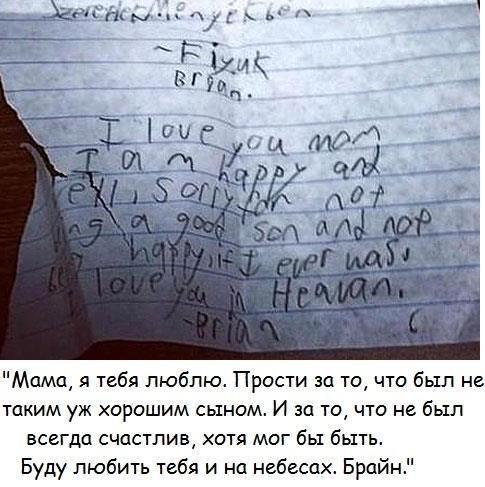 -Fiyuk
Brian.
I love you mom
I am happy and
ell, sorry for not
ing a good son and not
happy, if I ever was.
I love you in Heavan.
-Brian
"Мама, я тебя люблю. Прости за то, что был не
таким уж хорошим сыном. И за то, что не был
всегда счастлив, хотя мог бы быть.
Буду любить тебя и на небесах. Брайн."